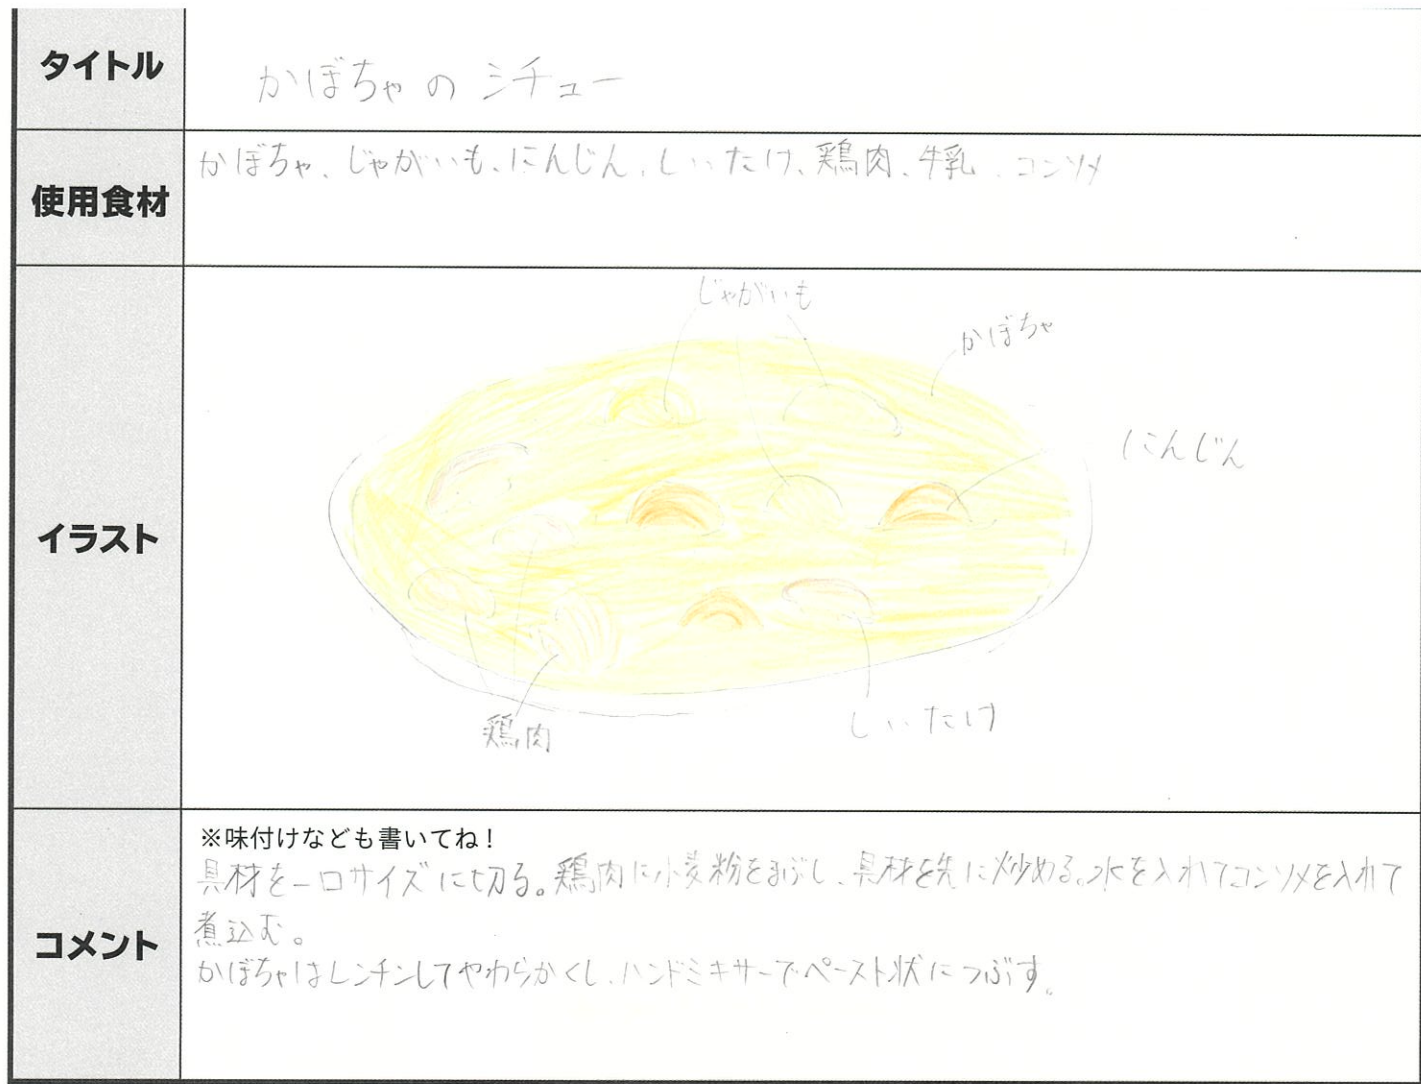 タイトル
かぼちゃのシチュー
使用食材
かぼちゃ、じゃがいも、にんじん、しいたけ、鶏肉、牛乳、コンソメ
イラスト
じゃがいも
かぼちゃ
にんじん
鶏肉
しいたけ
コメント
※味付けなども書いてね！
具材を一口サイズに切る。鶏肉に小麦粉をまぶし、具材を先に炒める。水を入れてコンソメを入れて
煮込む。
かぼちゃはレンチンしてやわらかくし、ハンドミキサーでペースト状につぶす。